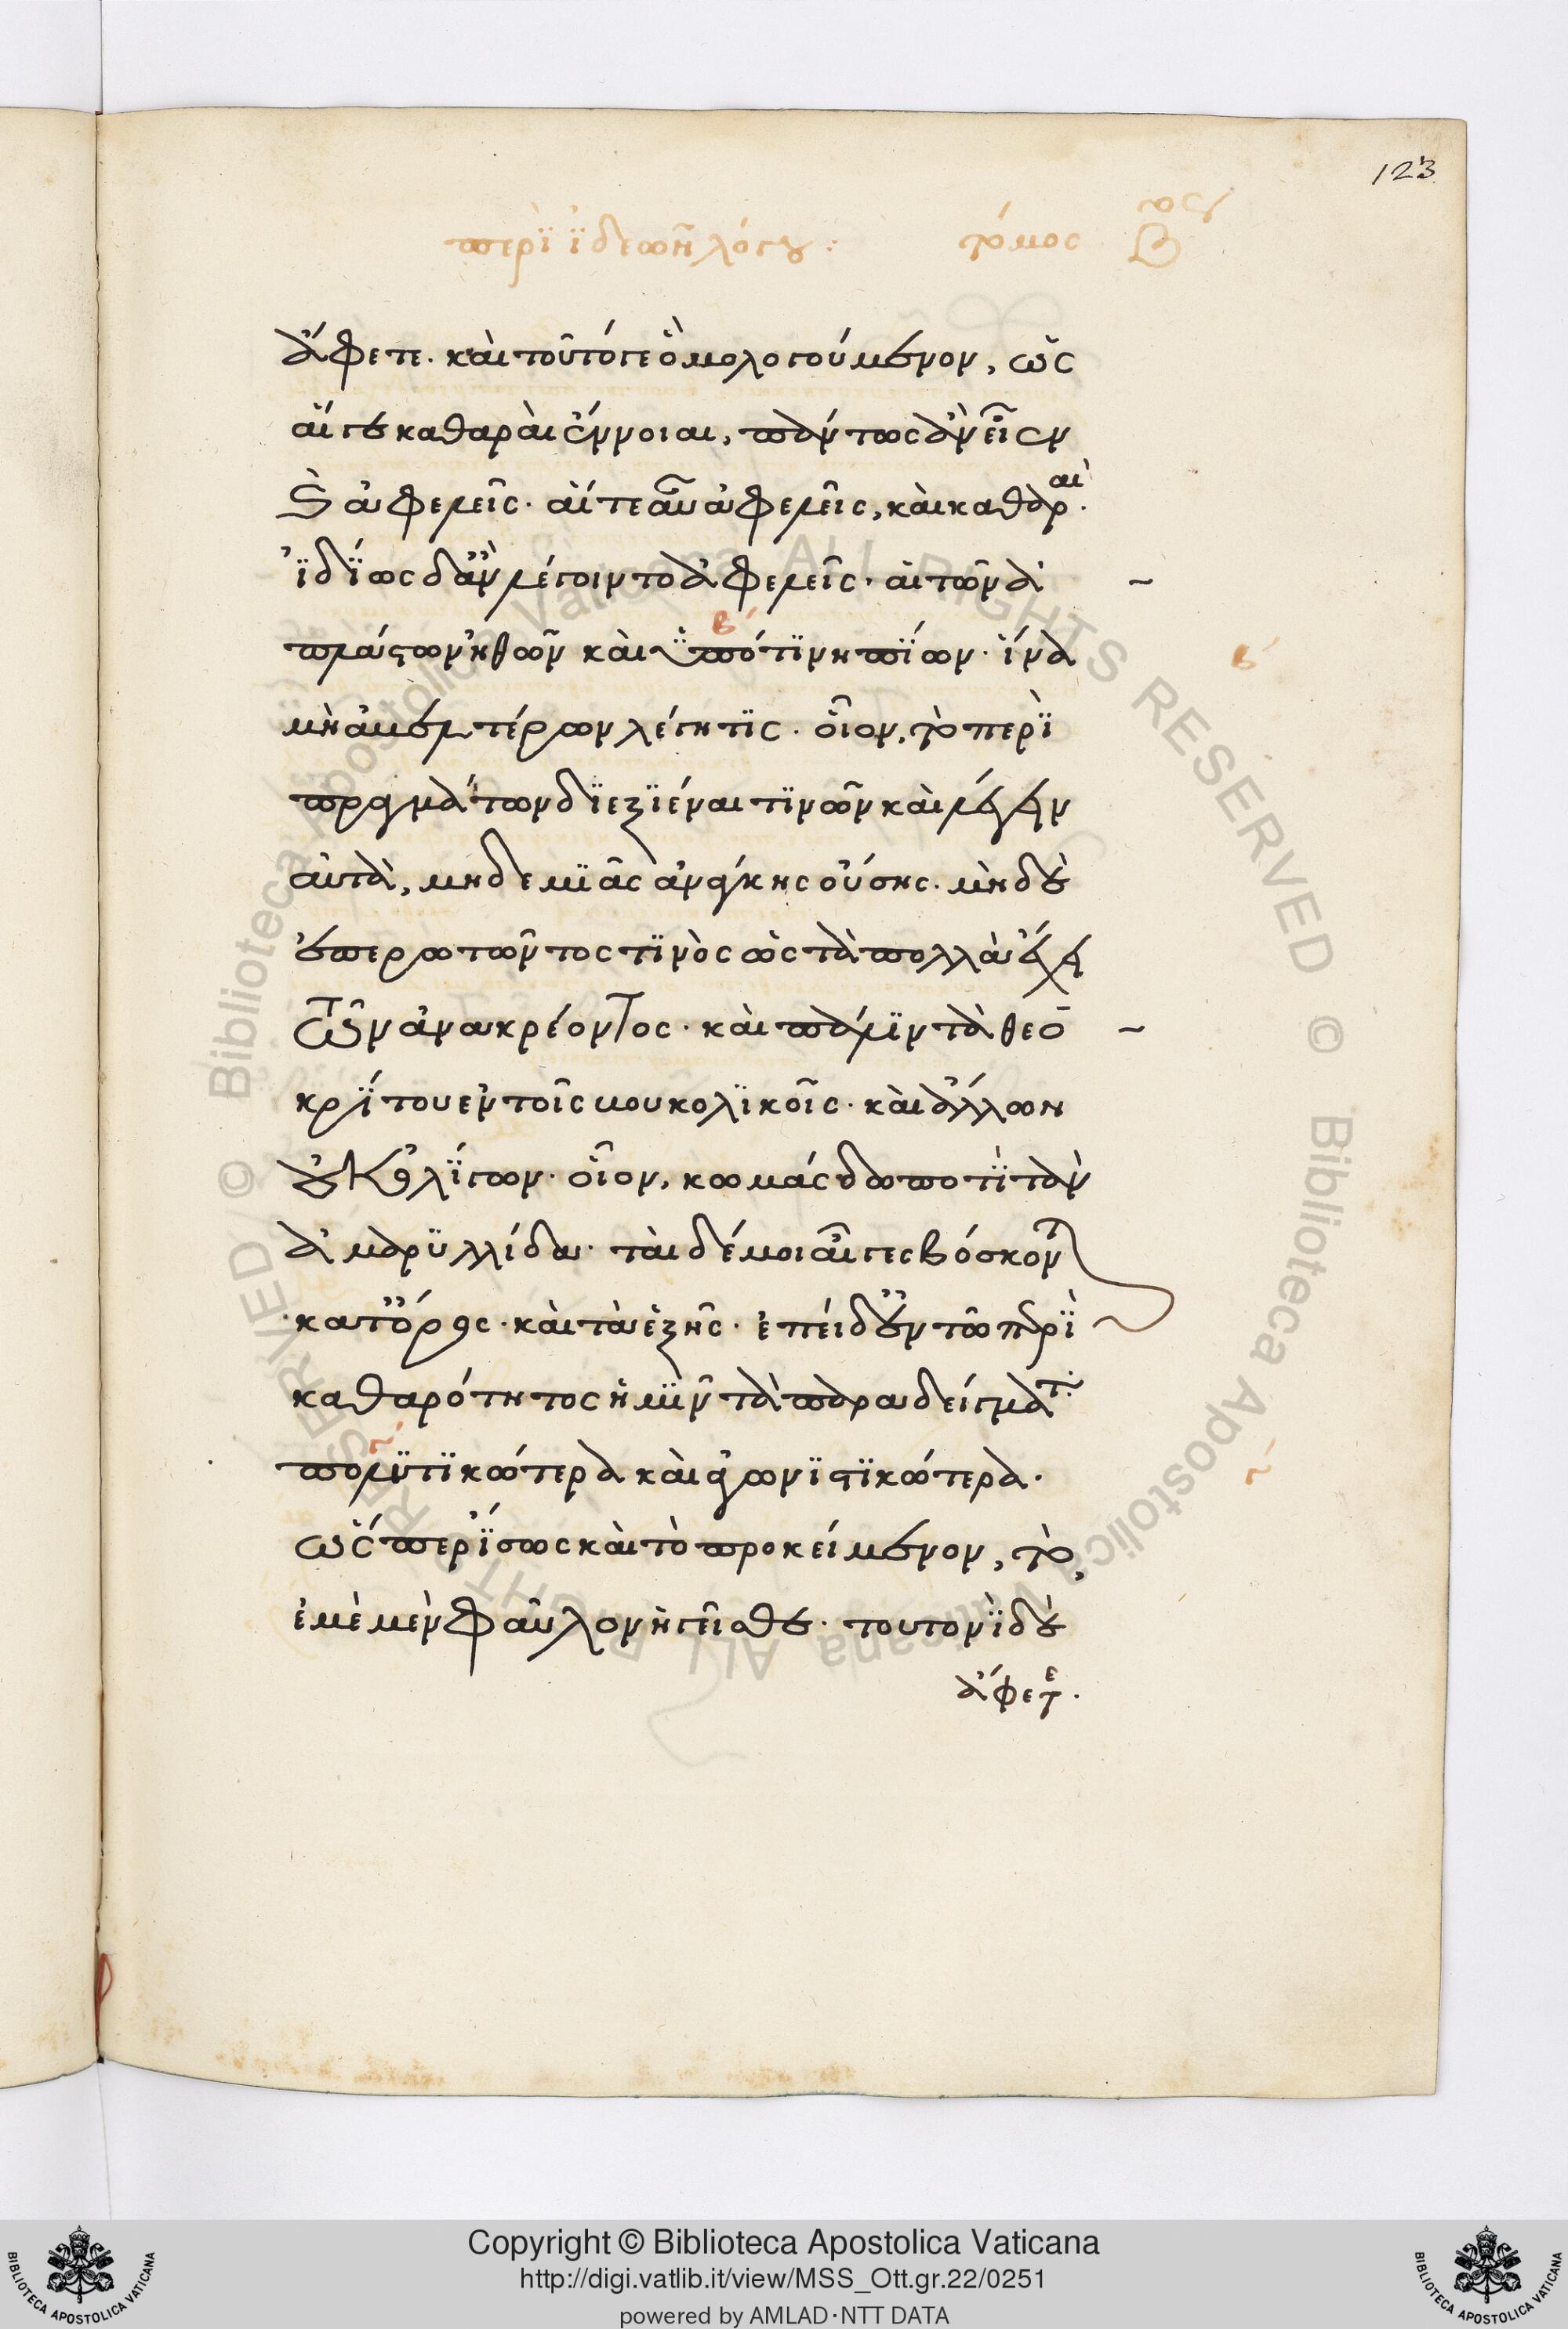 123
περὶ ἰδεῶν λόγου: τόμος Βος
ἄφετε. καὶ τοῦτό γε ὁμολογούμενον, ὡς
αἵ γε καθαραὶ ἔννοιαι, πάντως ἂν εἶεν
καὶ ἀφελεῖς. αἵ τε αὖ ἀφελεῖς, καὶ καθαραὶ.
ἰδίως δ' ἂν λέγοιντο ἀφελεῖς. αἱ τῶν ἀ
πλάστων ἠθῶν καὶ ὑπό τι νηπίων. ἵνα
μὴ ἀβελτέρων λέγῃ τις. οἷον, τὸ περὶ
πραγμάτων διεξιέναι τινῶν καὶ λέγειν
αὐτὰ, μηδεμιᾶς ἀνάγκης οὔσης. μὴ δὲ
ἐπερωτῶντος τινὸς ὡς τὰ πολλὰ ἔχει
τῶν ἀνακρέοντος. καὶ πάλιν τὰ θεο
κρίτου ἐν τοῖς βουκολικοῖς. καὶ ἄλλων
οὐκ ὀλίγων. οἷον, κωμάσδω ποτὶ τὰν
ἀμαρυλλίδα. ταὶ δέ μοι αἶγες βόσκονται
κατ' ὄρος. καὶ τὰ ἑξῆς. ἐπεὶ δ' ἐν τῶ περὶ
καθαρότητος ἡμῖν τὰ παραδείγματα
πολιτικώτερα καὶ ἀγωνιστικώτερα.
ὥσπερ ἴσως καὶ τὸ προκείμενον, τὸ,
ἐμὲ μὲν φαῦλον ἡγεῖσθε. τουτονὶ δὲ
ἄφετε.
Copyright © Biblioteca Apostolica Vaticana
http://digi.vatlib.it/view/MSS_Ott.gr.22/0251
powered by AMLAD·NTT DATA